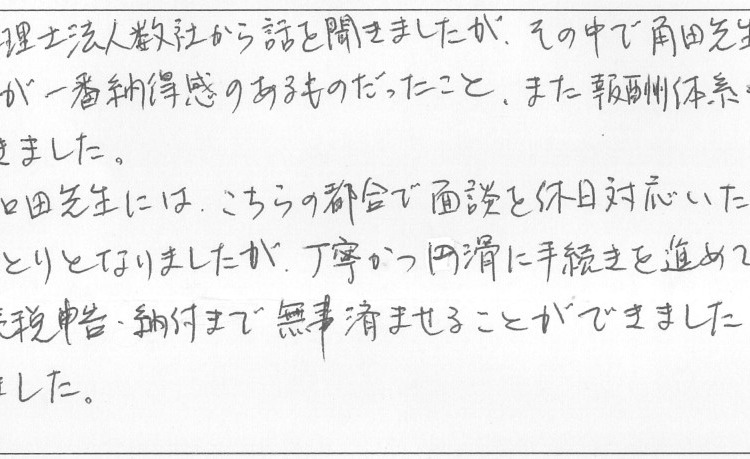 理士法人数社から話を聞きましたが、その中で角田先生
が一番納得感のあるものだったこと、また報酬体系
きました。
田先生には、こちらの都合で面談を休日対応いた
とりとなりましたが、丁寧かつ円滑に手続きを進めて
税申告・納付まで無事済ませることができました
ました。